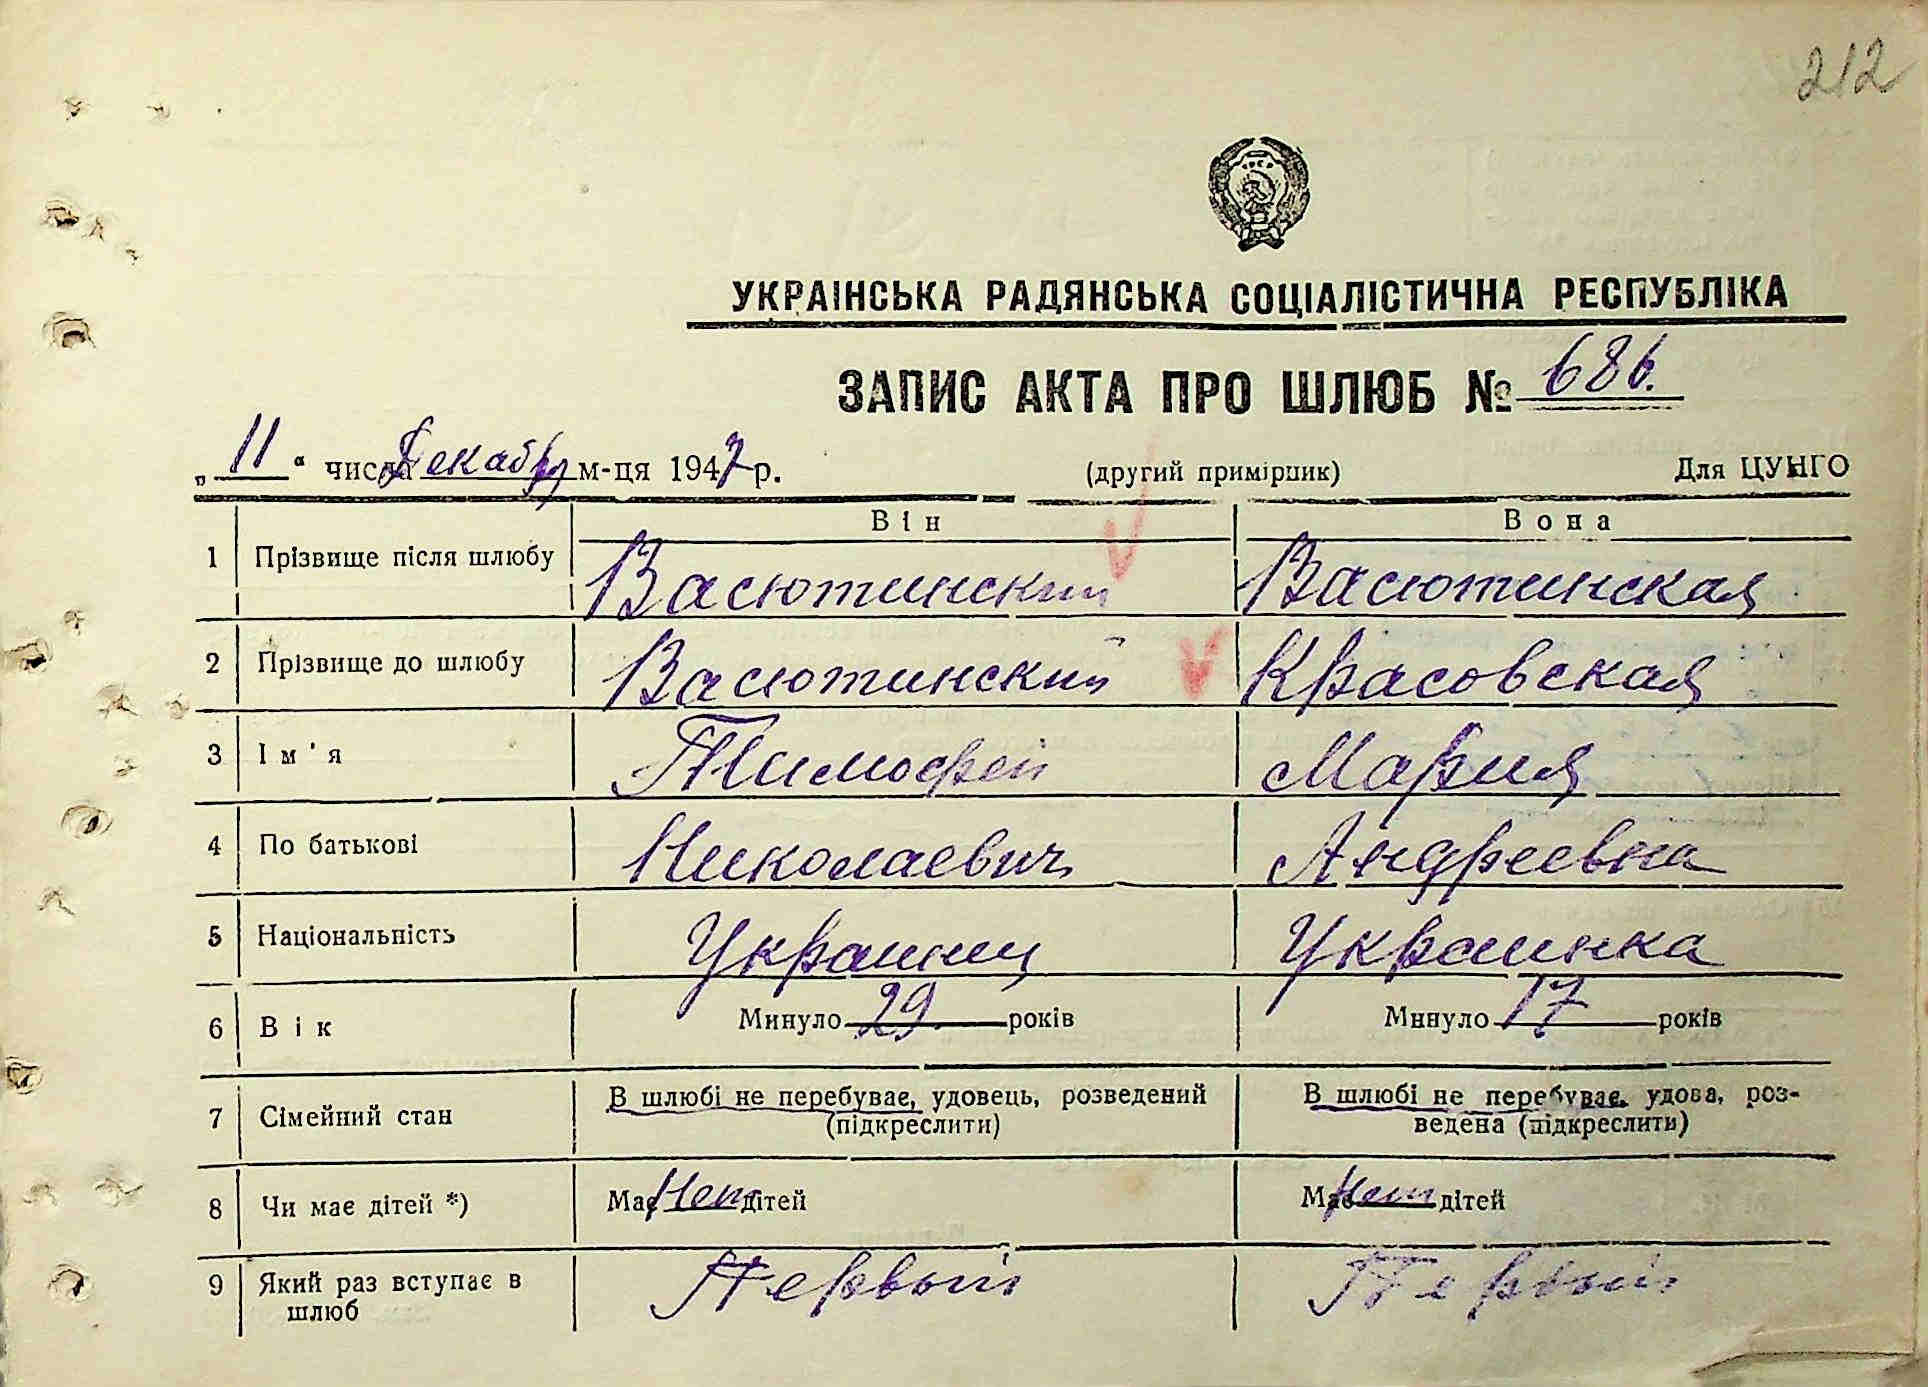 212
УКРАІНСЬКА РАДЯНСЬКА СОЦІАЛІСТИЧНА РЕСПУБЛІКА
ЗАПИС АКТА ПРО ШЛЮБ № 686.
„ 11 “ числа Декабря м-ця 1947 р. (другий примірник) Для ЦУНГО
Він Вона
1 Прізвище після шлюбу Васютинский Васютинская
2 Прізвище до шлюбу Васютинский Красовская
3 Ім'я Тимофей Мария
4 По батькові Николаевич Андреевна
5 Національність Украинец Украинка
6 Вік Минуло 29 років Минуло 17 років
7 Сімейний стан В шлюбі не перебуває, удовець, розведений В шлюбі не перебуває, удова, роз-
(підкреслити) ведена (підкреслити)
8 Чи має дітей *) Має Нет дітей Має Нет дітей
9 Який раз вступає в Первый Первый
шлюб